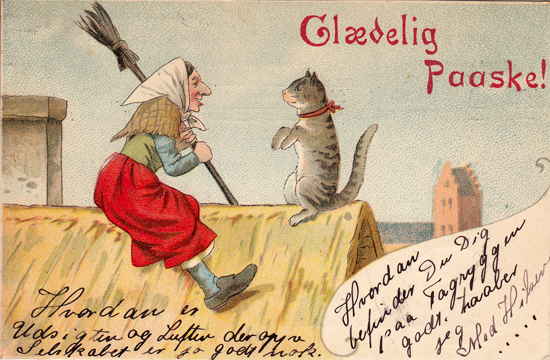 Glædelig
Paaske!
Hvordan er
Udsigten og Luften deroppe
Selskabet er jo godt nok.
Hvordan
befinder Du Dig
paa Tagryggen
godt, haaber
jeg
Med Hilsen